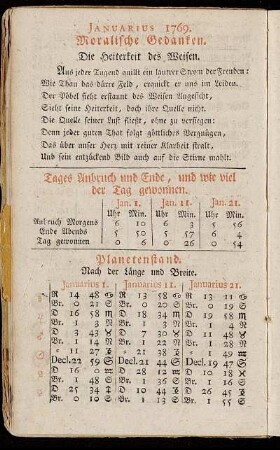 JANUARIUS 1769.
Moralische Gedanken.
Die Heiterkeit des Weisen.
Aus jeder Tugend quillt ein lautrer Strom der Freuden:
Wie Thau das dürre Feld, erquickt er uns im Leiden.
Der Pöbel sieht erstaunt des Weisen Angesicht,
Sieht seine Heiterkeit, doch ihre Quelle nicht.
Die Quelle seiner Lust fliesst, ohne zu versiegen:
Denn jeder guten That folgt göttliches Vergnügen,
Das über unser Herz mit reiner Klarheit stralt,
Und sein entzückend Bild auch auf die Stirne mahlt.
Tages Anbruch und Ende, und wie viel
der Tag gewonnen.
Jan. 1. Jan. 11. Jan. 21.
Uhr Min. Uhr Min. Uhr Min.
Anbruch Morgens 6 10 6 3 5 56
Ende Abends 5 50 5 57 6 4
Tag gewonnen 0 6 0 26 0 54
Planetenstand.
Nach der Länge und Breite.
Januarius 1. Januarius 11. Januarius 21.
R 14 48 R 13 58 R 13 11
Br. 0 21 S Br. 0 20 S Br. 0 19 S
D 16 58 D 18 34 D 19 58
Br. 1 3 N Br. 1 3 N Br. 1 2 N
D 3 43 D 7 30 D 11 48
Br. 1 4 N Br. 1 14 N Br. 1 24 N
11 27 21 38 1 49
Decl. 22 59 S Decl. 21 44 S Decl. 19 47 S
D 16 31 D 29 4 D 11 36
Br. 1 8 S Br. 1 25 S Br. 1 31 S
D 25 34 D 10 44 D 26 45
Br. 0 10 S Br. 1 13 S Br. 1 55 S